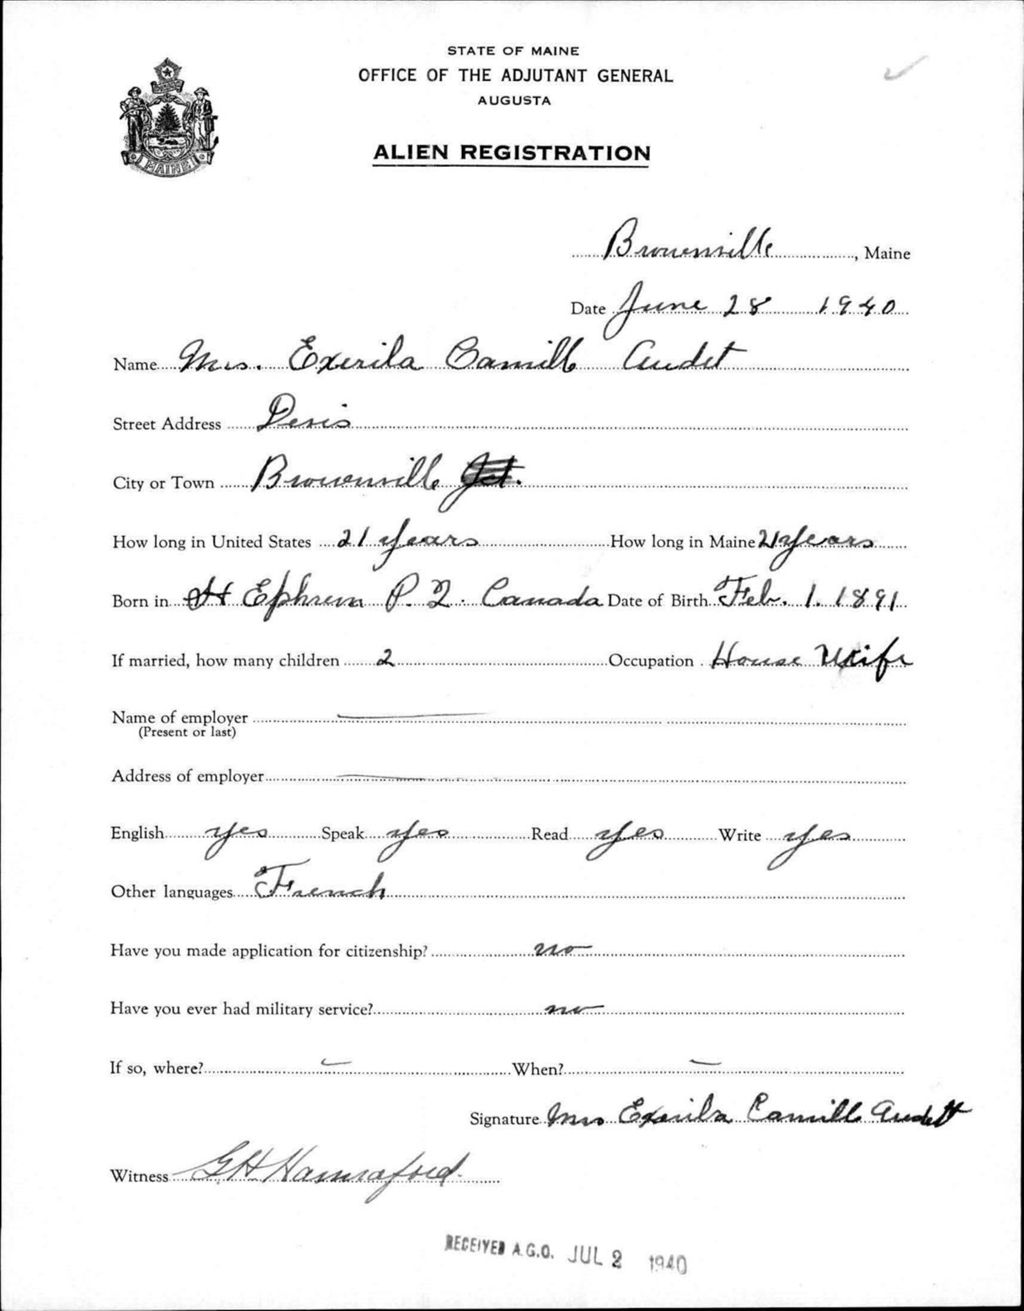 STATE OF MAINE
OFFICE OF THE ADJUTANT GENERAL
AUGUSTA
ALIEN REGISTRATION
MAINE
Brownville, Maine
Date June 28 1940
Name Mrs. Exerila Camille Audet
Street Address Davis
City or Town Brownville Jct.
How long in United States 21 years How long in Maine 21 years
Born in St Ephrem P. Q. Canada Date of Birth Feb. 1. 1891
If married, how many children 2 Occupation House Wife
Name of employer
(Present or last)
Address of employer
English yes Speak yes Read yes Write yes
Other languages French
Have you made application for citizenship? no
Have you ever had military service? no
If so, where? – When? –
Signature Mrs Exerila Camille Audett
Witness G H Hannaford
RECEIVED A.G.O. JUL 2 1940